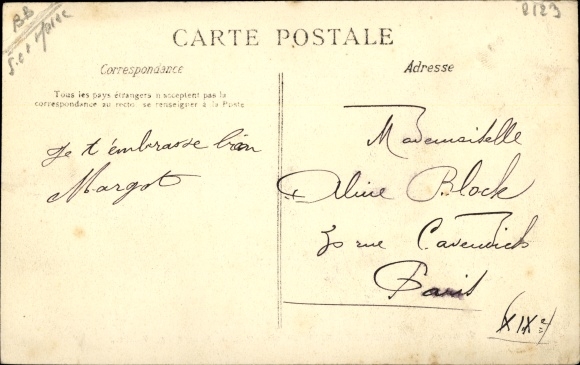 BB
S.et Marc
2123
CARTE POSTALE
Correspondance
Tous les pays étrangers n'acceptent pas la
correspondance au recto, se renseigner à la Poste
Je t'embrasse bien
Margot
Adresse
Mademoiselle
Aline Block
rue Cavendich
Paris
(XIXe)